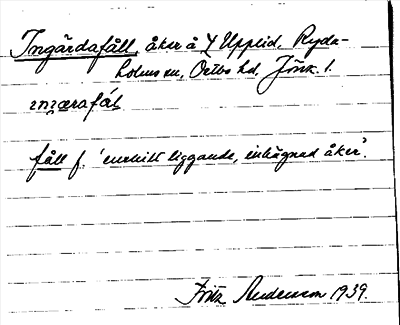 Ingärdafåll, åker å Y Upplid, Ryda-
holms sn, Östbo hd, Jönk. l.
fåll f. 'enskilt liggande, inhägnad åker'.
Fritz Andersson 1939.